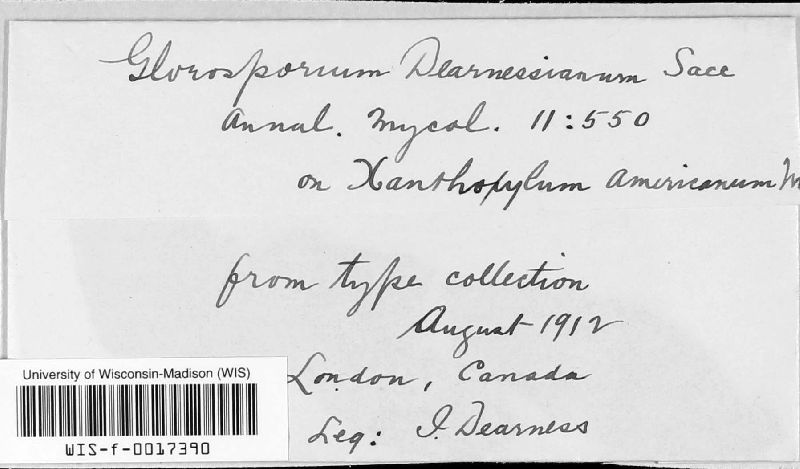 Gloeosporium Dearnessianum Sacc
Annal. Mycol. 11:550
on Xanthoxylum Americanum M
from type collection
August 1912
London, Canada
Leg: J. Dearness
University of Wisconsin-Madison (WIS)
WIS-f-0017390